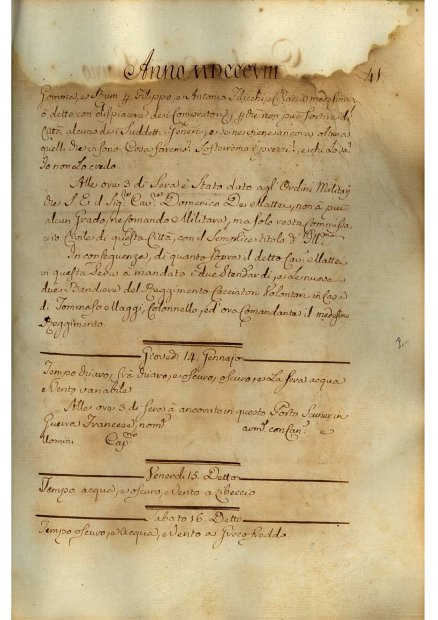 Anno MDCCCVIII
41
Gomme, e Arum p Filippo, e Antonio Filicchi, e
o detto con dispiacere de i Compratori, p che non può sortire di
Città, alcuno de i Suddetti Generi, e se ne viene ancora, oltre a
quelli che vi sono Cosa faremo? Sosterremo i prezzi, e chi lo sà?
Io non lo credo.
Alle ore 3 di Sera è Stato dato agl' Ordini Militari
S. E. il Sigre Cavre Domenico De i Mattei, non à più
alcun Grado, ne Comando Militare, ma solo resta Commissa,,
rio Civile di questa Città, con il Semplice titolo d' Illmo
In conseguenza, di quanto sopra il detto Cav: Mattei
in questa Sera à mandato i due Stendardi, e le nuove
due Bandiere del Reggimento Cacciatori Volontari in Casa
di Tommaso Maggi, Colonnello, ed' ora Comandante il medesimo
Reggimento
Giovedì 14. Gennajo
Tempo Chiaro, frà Chiaro, e oscuro, oscuro, e La Sera acqua
e Vento variabile
Alle ore 3 di Sera à ancorato in questo Porto Scuner in
Guerra Francese, nomo armo con Cani e
Uomini Capno
Venerdì 15. Detto
Tempo acqua, e oscuro, e Vento a Libeccio
Sabato 16. Detto
Tempo oscuro, e Acqua, e Vento a Greco freddo